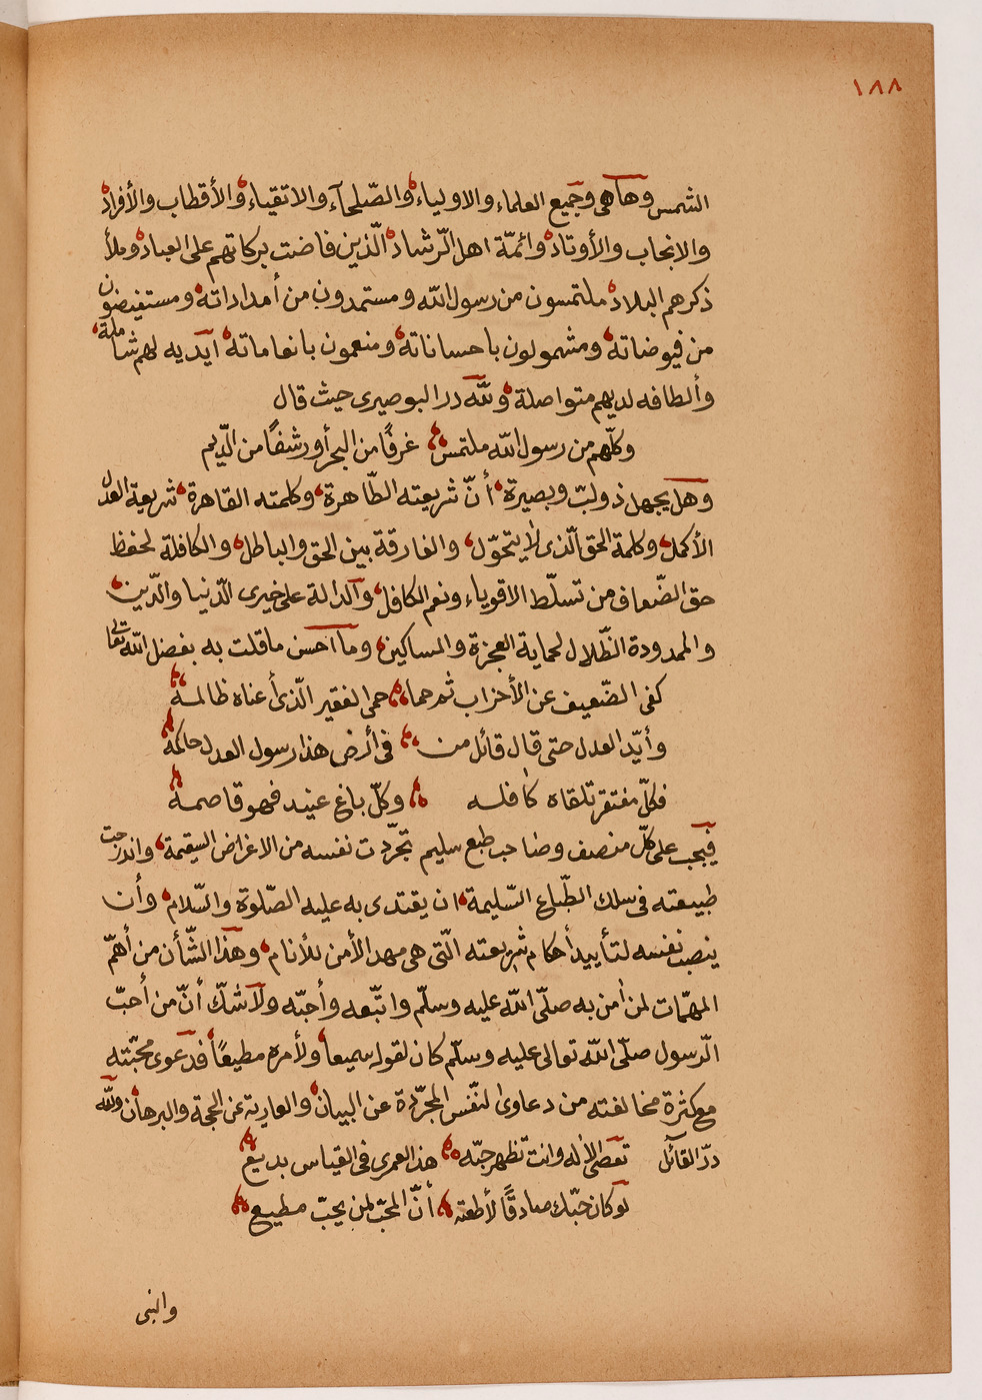 ١٨٨
الشمس وها هى وجميع العلماء والاولياء والصّلحآء والاتقياء والأقطاب والأفراد
والانجاب والأوتاد وائمّة اهل الّرشاد الّذين فاضت بركاتهم على العباد وملأ
ذكرهم البلاد ملتمسون من رسول الله ومستمدون من أمداداته ومستفيضون
من فيوضاته ومشمولون باحساناته ومنعمون بانعاماته آيديه لهم شاملة
وألطافه لديهم متواصلة ولله در البوصيرى حيث قال
وكلّهم من رسول الله ملتمس غرفًا من البحر أو رشفًا من الّديم
وهل يجهل ذو لبّ وبصيرة أنّ شريعته الطّاهرة وكلمته القاهرة شريعة العدل
الأكمل وكلمة الحق الّذى لا يتحوّل والفارقة بين الحق والباطل والكافلة لحفظ
حق الضّعاف من تسلّط الاقوياء ونعم الكافل وآلدالة على خيرى الّدنيا والّدين
والممدودة الظّلال لحماية العجزة والمساكين وما احسن ما قلت به بفضل الله تعالى
كفى الضّعيف عن الأحزاب ثم حما حمى الفقير الّذى أعناه ظالمه
وأيّد العدل حتى قال قائل من فى أرض هذا رسول العدل حاكمه
فكلّ مفتقر تلقاه كافله وكلّ باغ عنيد فهو قاصمه
فيجب على كلّ منصف وصاحب طبع سليم تجرّدت نفسه من الاغراض السقيمة واندرجت
طبيعته فى سلك الطّباع السّليمة ان يقتدى به عليه الصّلوة والسّلام وأن
ينصب نفسه لتأييد أحكام شريعته الّتى هى مهد الأمن للأنام وهذا الشّأن من أهمّ
المهمّات لمن أمن به صلّى الله عليه وسلّم واتبّعه وأحبّه ولآ شكّ أنّ من أحبّ
الّرسول صلّى الله تعالى عليه وسلّم كان لقوله سميعا ولأمره مطيعًا فدعوى محبّته
مع كثرة مخالفته من دعاوى النّفس المجرّدة عن البيان والعارية عن الحجة والبرهان ولله
درّ القآئل تعصى الإله وانت تظهر حبّه هذا لعمرى فى القياس بديع
لو كان حبّك صادقًا لأطعته أنّ المحبّ لمن يحبّ مطيع
والنبى